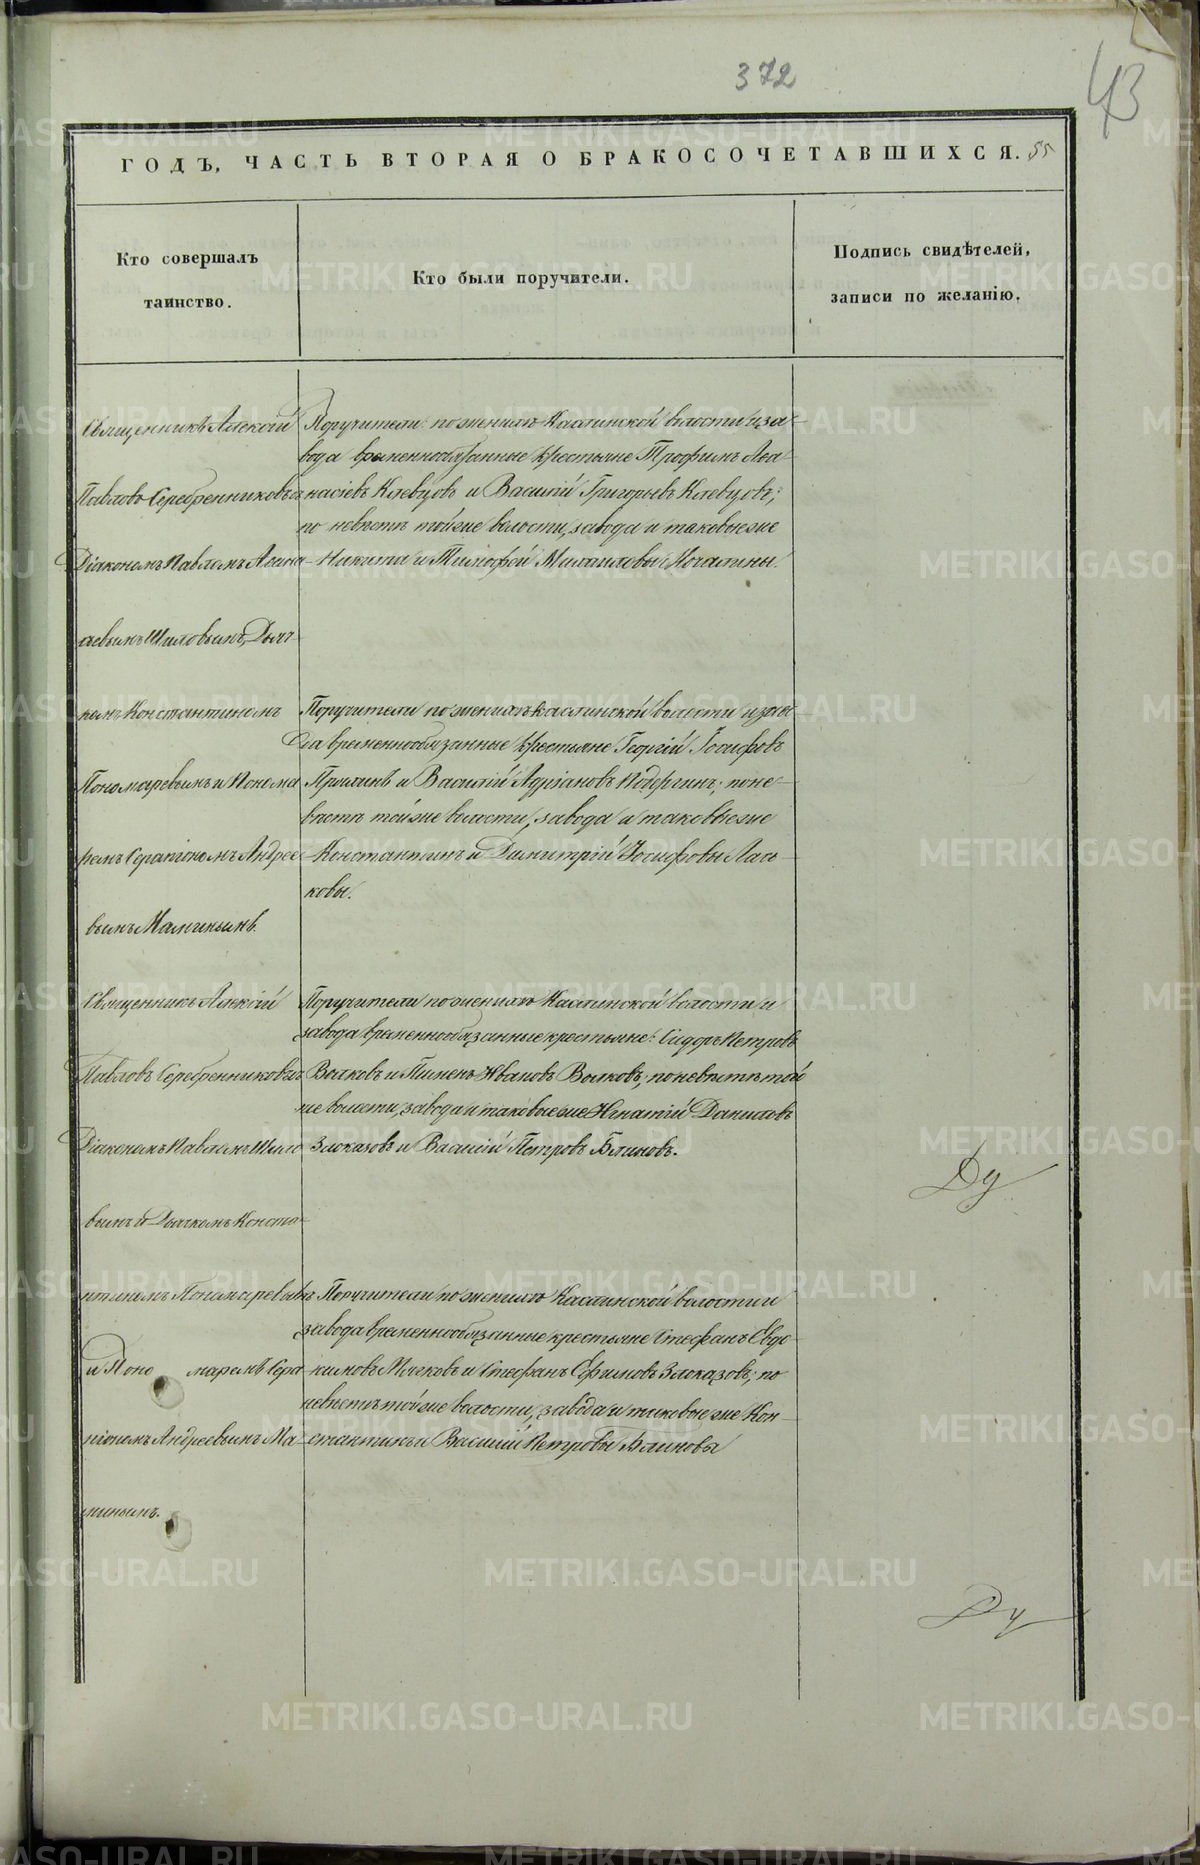 372
43
ГОДЪ, ЧАСТЬ ВТОРАЯ О БРАКОСОЧЕТАВШИХСЯ. 55
Кто совершалъ
таинство.
Кто были поручители.
Подпись свидѣтелей,
записи по желанію.
Священникъ Алексій
Павловъ Серебренниковъ съ
Діакономъ Павломъ Аѳана-
сьевымъ Шиловымъ, Дьяч-
комъ Константиномъ
Пономаревымъ и Понома
ремъ Серапіономъ Андрее-
вымъ Мамтиньымъ.
Поручители: по женихѣ Каслинской волости и за-
вода временнообязанные крестьяне Трофимъ Аѳа-
насіевъ Клевцовъ и Василій Григорьевъ Клевцовъ;
по невѣстѣ той же волости, завода и таковые же
Никита и Тимофей Михаиловы Мочалины.
Поручители по женихѣ Каслинской волости и заво
да временнообязанные крестьяне Георгій Іосифовъ
и Василій Адріановъ по не-
вѣстѣ той же волости, завода и таковые же
Константинъ и Димитрій Іосифовы
ковы.
Священникъ Алексій
Павловъ Серебренниковъ съ
Діакономъ Павломъ Шило
вымъ и Дьячкомъ Конста-
нтиномъ Пономаревымъ
и Поно маремъ Сера
піономъ Андреевымъ Ма-
Поручители по женихѣ Каслинской волости и
завода временнообязанные крестьяне: Сидоръ Петровъ
Волковъ и Пименъ Ивановъ Волковъ; по невѣстѣ той
же волости, завода и таковые же Игнатій Даниловъ
Злоказовъ и Василій Петровъ Блиновъ.
Поручители по женихѣ Каслинской волости и
завода временнообязанные крестьяне Стефанъ Евдо
кимовъ и Стефанъ Ефимовъ Злоказовъ; по
невѣстѣ той же волости, завода и таковые же Кон-
стантинъ и Василій Петровы Блиновы
METRIKI.GASO-URAL.RU